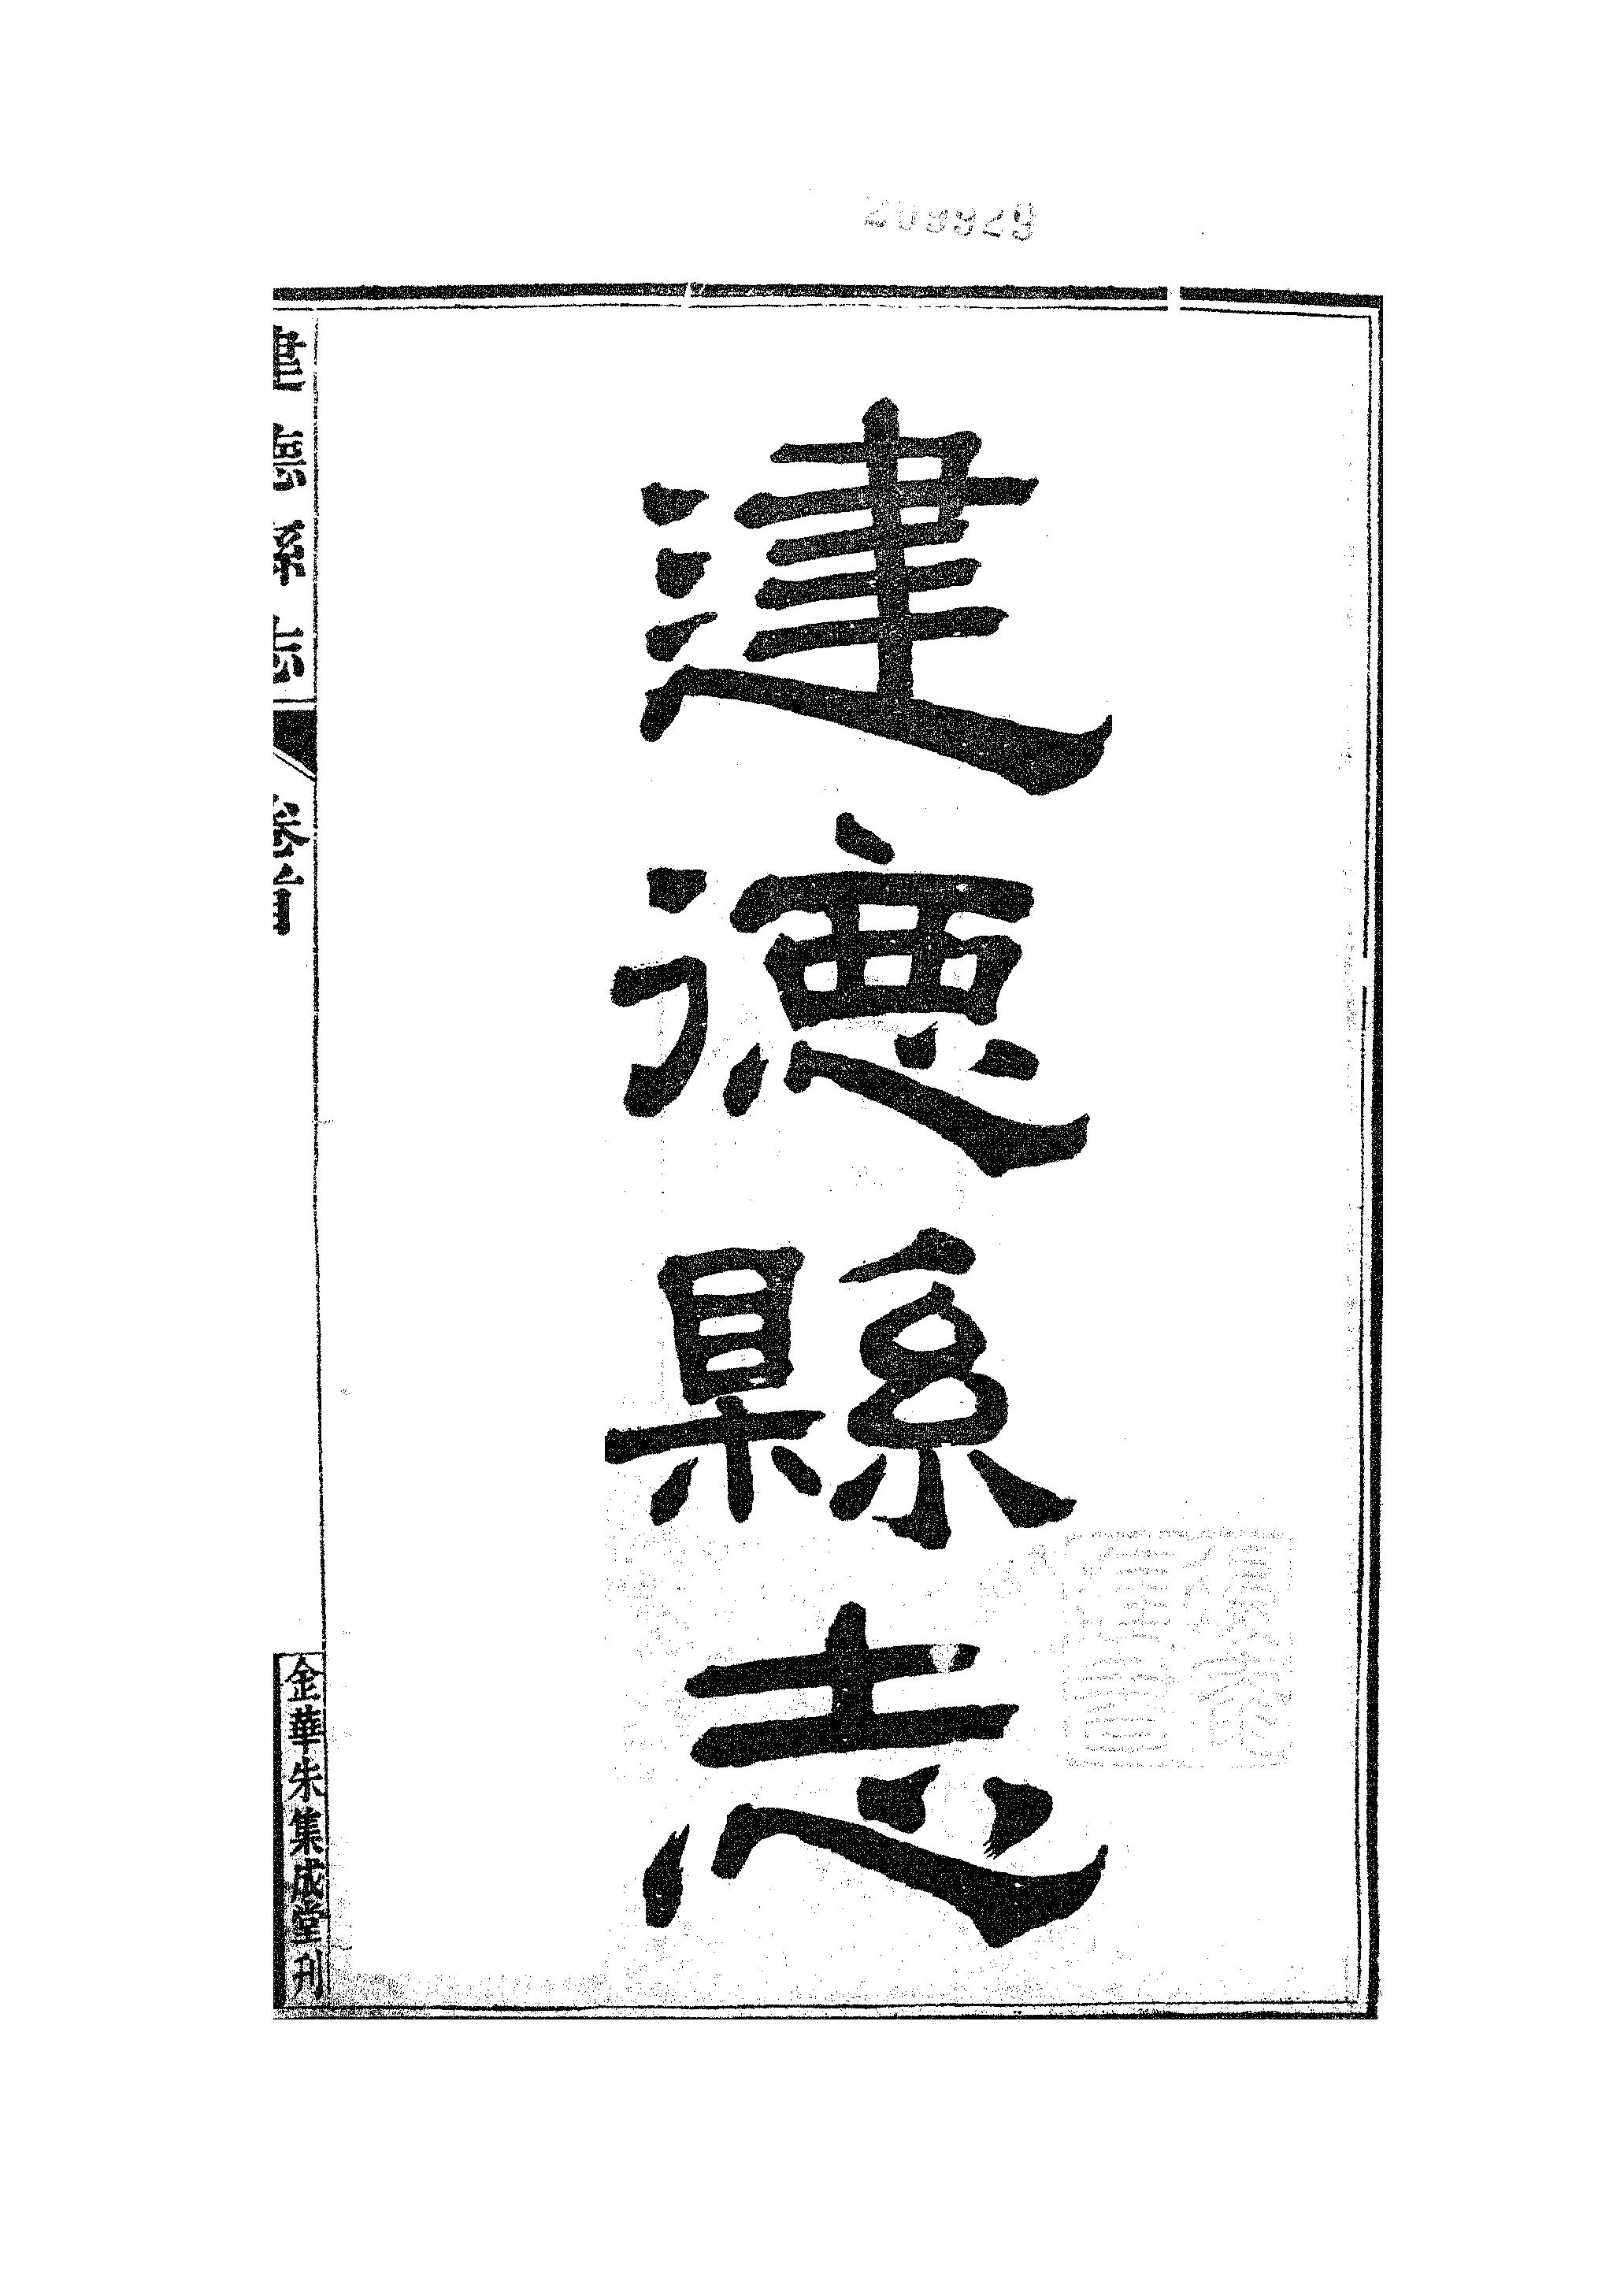 建德縣志
建德縣志 卷首
金華朱集成堂刊